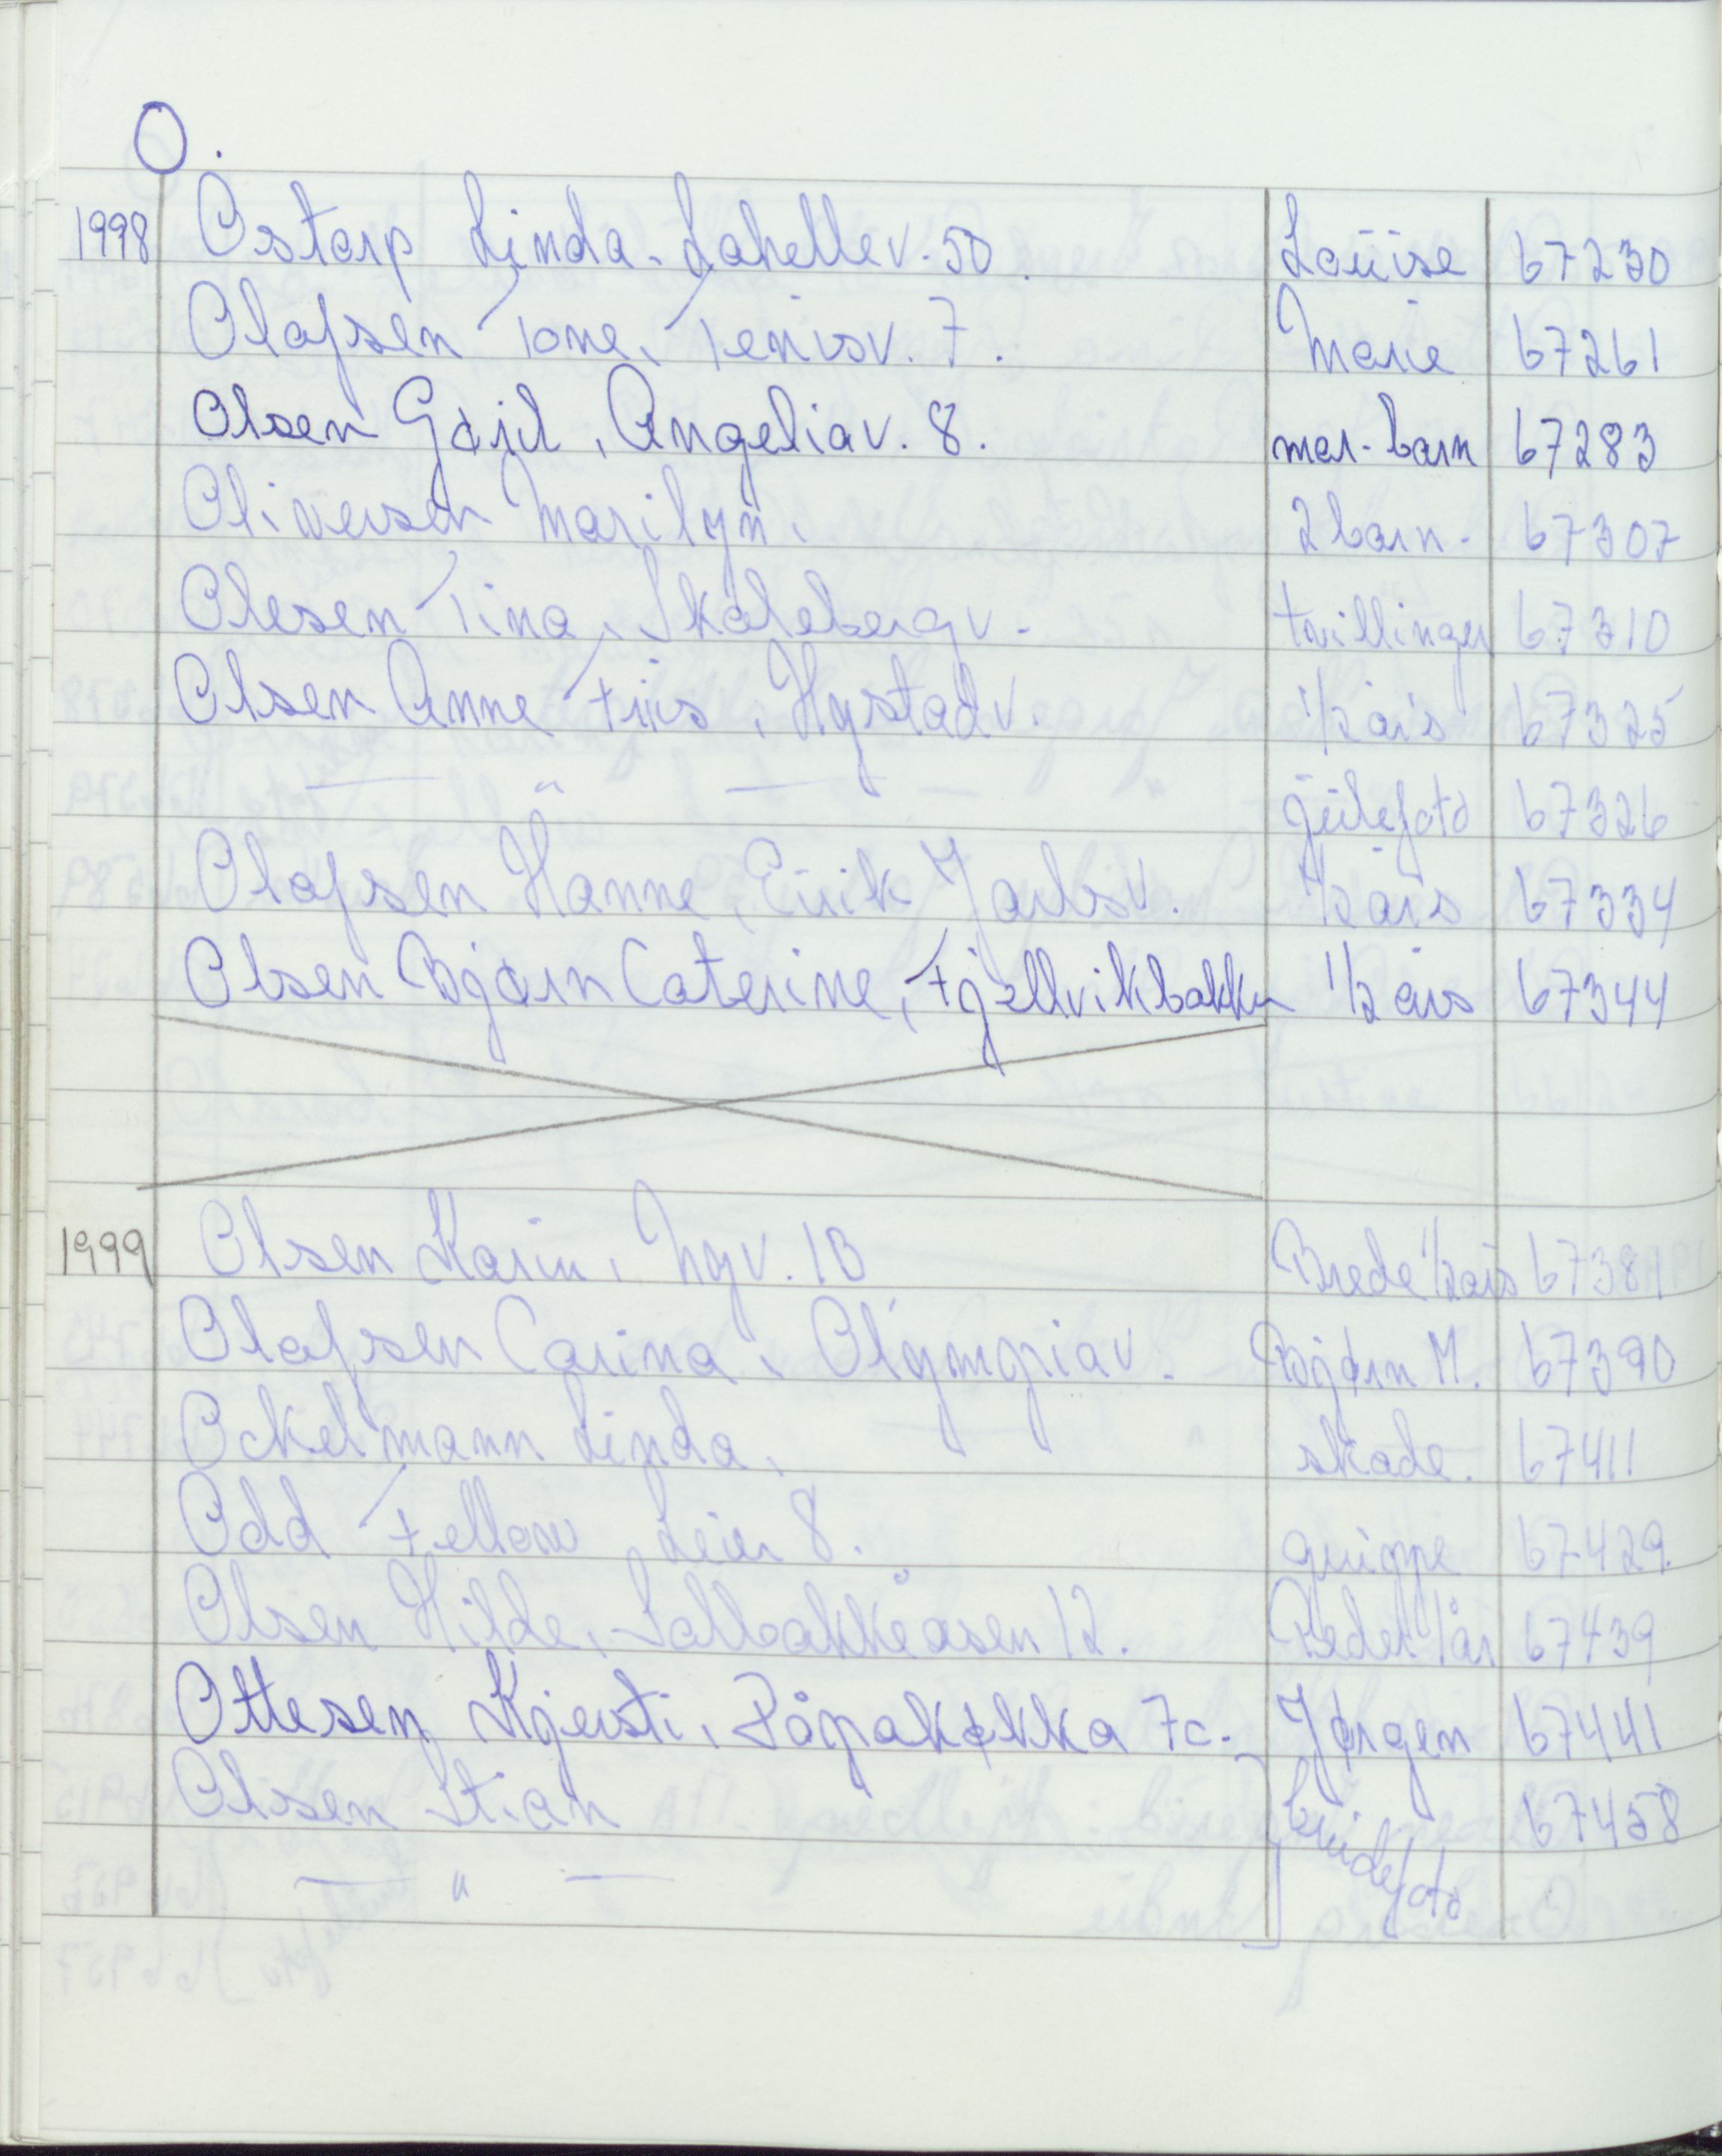 O.
1998 Ostarp Linda. Lahellev. 50. Louise 67230
Olafsen Tone, Tenisv. 7. Marie 67261
Olsen Gøril, Angeliav. 8. mor-barn 67283
Oliversen Marilyn. 2 barn. 67307
Olesen Tina, Skolebergv. tvillinger 67310
Olsen Anne Friis, Hystadv. 1/2 års 67325
— " — julefoto 67326
Olafsen Hanne, Eirik Jarlsv. 1/2 års 67334
Olsen Bjørn Caterine, Fjellvikbakken 1/2 års 67344
1999 Olsen Karin, Nyv. 10 Brede 1/2 års 67381
Olafsen Carina, Olympiav. Bjørn M. 67390
Ockelmann Linda, skade. 67411
Odd Fellow Leir 8. gruppe 67429
Olsen Hilde, Solbakkeåsen 12. Peder 1 år 67439
Ottesen Kjersti, Påpakøkka 7c. Jørgen 67441
Olsen Stian brudefoto 67458
— " —